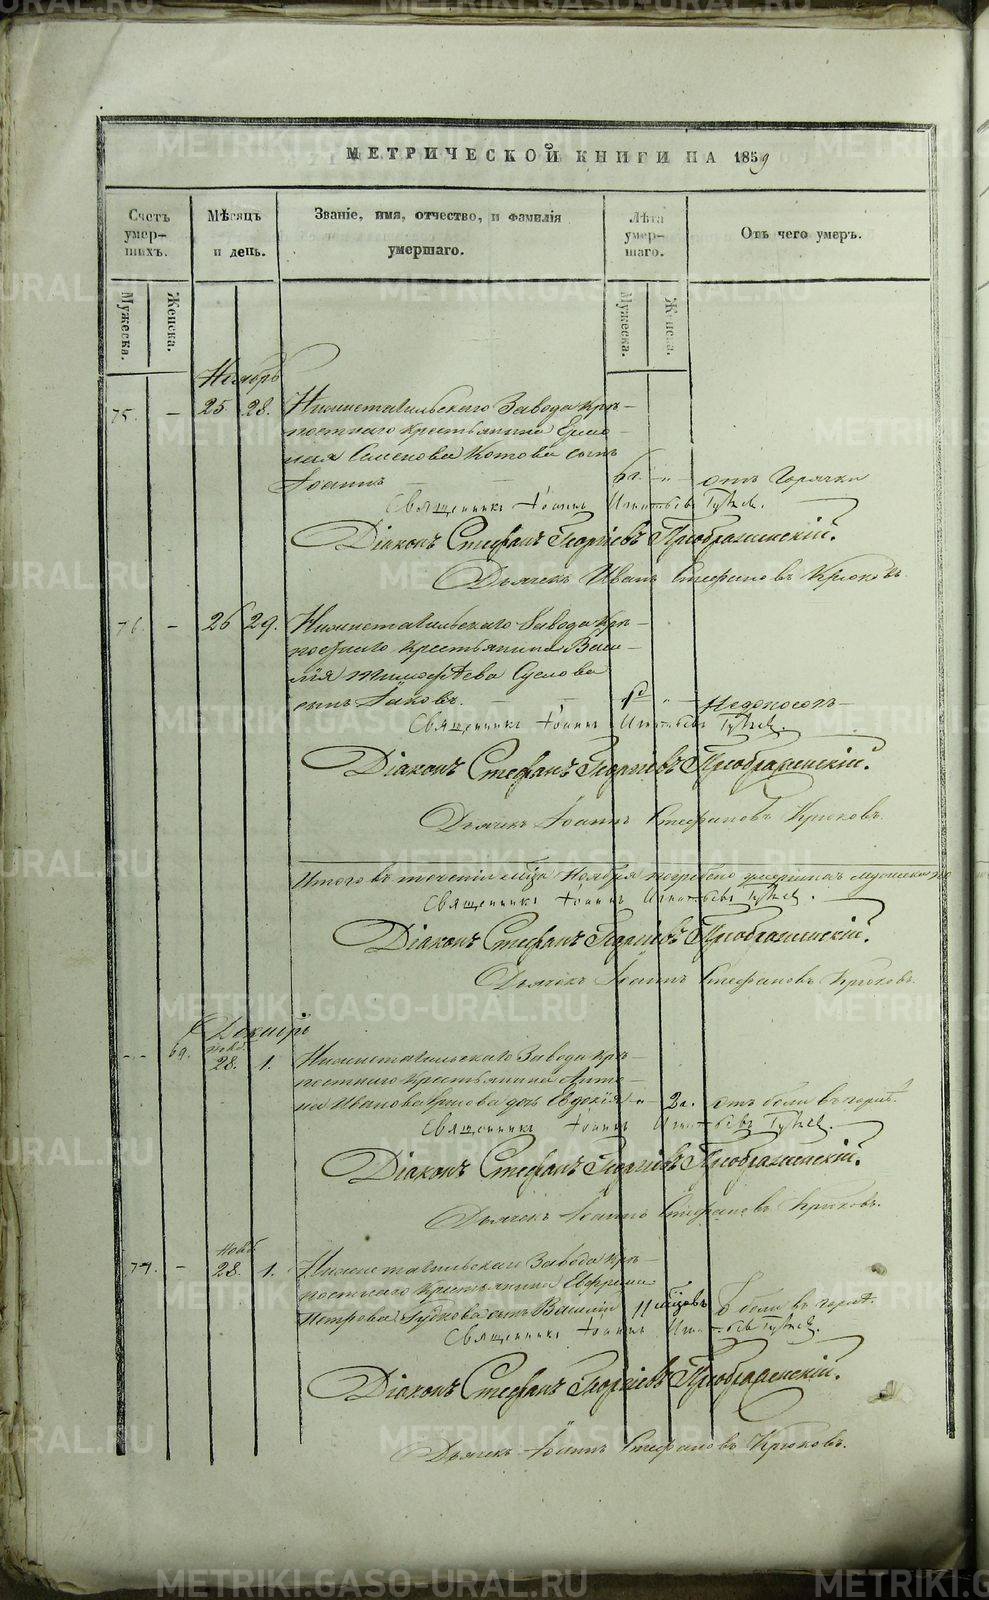 МЕТРИЧЕСКОЙ КНИГИ НА 1859
Счетъ умер- шихъ.
Мѣсяцъ и день.
Званіе, имя, отчество, и фамилія умершаго.
Лѣта умер- шаго.
Отъ чего умеръ.
Мужеска. Женска. Мужеска. Женска.
Ноябрь
75. — 25 28. Нижнетагильскаго Завода крѣ-
постнаго крестьянина
Семенова Котова сынъ
Іоаннъ — — 6 г. „ — отъ Горячки
Священникъ Іоаннъ Игнатьевъ
Діаконъ Стефанъ Георгіевъ Преображенскій.
Дьячекъ Иванъ Стефановъ Крюковъ.
76. — 26 29. Нижнетагильскаго Завода крѣ-
постнаго крестьянина Васи-
лія Тимофѣева Суслова
сынъ Іаковъ. — „ — Недоносокъ
Священникъ Іоаннъ Игнатьевъ
Діаконъ Стефанъ Георгіевъ Преображенскій.
Дьячекъ Іоаннъ Стефановъ Крюковъ.
Итого въ теченіи мѣца Ноября погребено умершихъ мужеска
Священникъ Іоаннъ Игнатьевъ
Діаконъ Стефанъ Георгіевъ Преображенскій.
Дьячекъ Іоаннъ Стефановъ Крюковъ.
Декабрь
Нояб.
— 69. 28. 1. Нижнетагильскаго Завода крѣ-
постнаго крестьянина Анто-
на Иванова дочь Евдокія — „ — 2 г. отъ боли въ горлѣ.
Священникъ Іоаннъ Игнатьевъ
Діаконъ Стефанъ Георгіевъ Преображенскій.
Дьячекъ Іоаннъ Стефановъ Крюковъ.
Нояб.
77. — 28. 1. Нижнетагильскаго Завода крѣ-
постнаго крестьянина Ефрема
Петрова сынъ Василій 11 мѣцовъ боли въ горлѣ.
Священникъ Іоаннъ Игнатьевъ
Діаконъ Стефанъ Георгіевъ Преображенскій.
Дьячекъ Іоаннъ Стефановъ Крюковъ.
METRIKI.GASO-URAL.RU